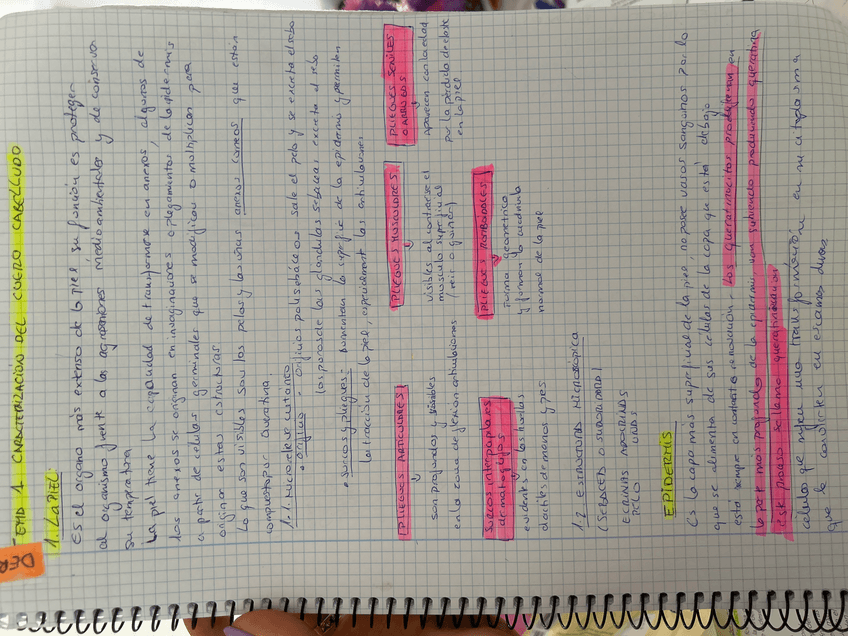 DER
TEMA 1 CARACTERIZACIÓN DEL CUERO CABELLUDO
1. LA PIEL:
Es el organo más extenso de la piel, su función es proteger
al organismo frente a las agresiones medioambientales y de conservar
su temperatura
La piel tiene la capacidad de transformarse en anexos, algunos de
los anexos se originan en invaginaciones o plegamientos de la epidermis
a partir de celulas germinales que se modifican o multiplican para
originar estas estructuras
Lo que son visibles son los pelos y las uñas anexos corneos que estan
compuestos por queratina.
1.1. Microrelieve cutaneo
• orificios - orificios pilosebáceos sale el pelo y se excreta el sebo
los poros de las glandulas sebaceas excreta el sebo
• surcos y pliegues: aumentan la superficie de la epidermis y permiten
la tracción de la piel, especialmente las articulaciones
PLIEGUES ARTICULARES
son profundos y visibles
en la zona de flexion articulaciones
PLIEGUES MUSCULARES
visibles al contraerse el
musculo superficial
(reir o guiñar)
PLIEGUES SENILES
O ARRUGAS
Aparecen con la edad
por la perdida de
en la piel
Surcos interpapilares
dermatoglifos
evidentes en las huellas
dactiles de manos y pies
PLIEGUES ROMBOIDALES
forma geometrica
y forman la
normal de la piel
1.2 ESTRUCTURA MICROSCÓPICA
(SEBACEA O SUDORIPARA)
ECRINAS APOCRINAS
PELO UÑAS
EPIDERMIS
Es la capa más superficial de la piel, no posee vasos sanguineos por lo
que se alimenta de sus células de la capa que está debajo
está siempre en constante renovación. Los queratinocitos proliferan en
la parte mas profunda de la epidermis, van subiendo produciendo queratina
este proceso se llama queratinización
células que sufren una transformación en su citoplasma
que la convierten en escamas duras